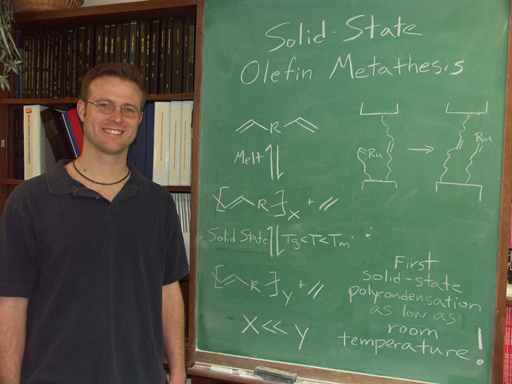 Solid-State
Olefin Metathesis
R
Melt
[ R ]x +
Solid State Tg<T<Tm
[ R ]y +
x << y
Ru → Ru
First
solid-state
polycondensation
as low as
room
temperature!